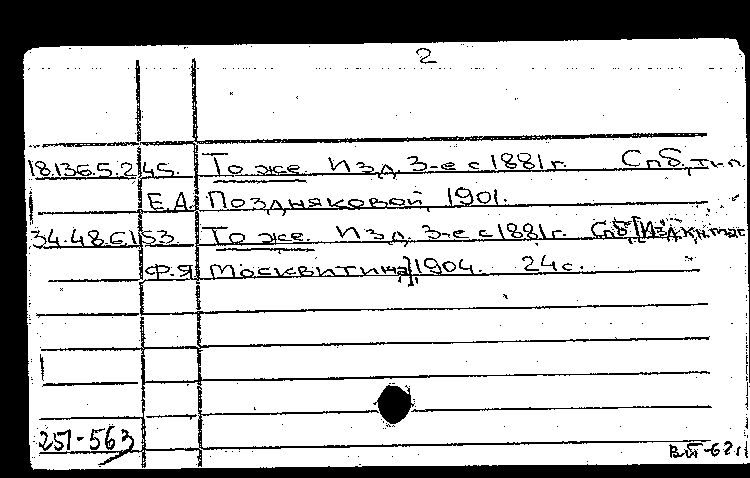 2
18.136.5.245. То же Изд. 3-е с 1881 г. Спб, тип.
Е.А. Поздняковой, 1901.
34.48.6.153 То же. Изд. 3-е с 1881 г. Спб [Изд. кн. маг.
Ф.Я. Москвитина], 1904. 24 с.
251-563